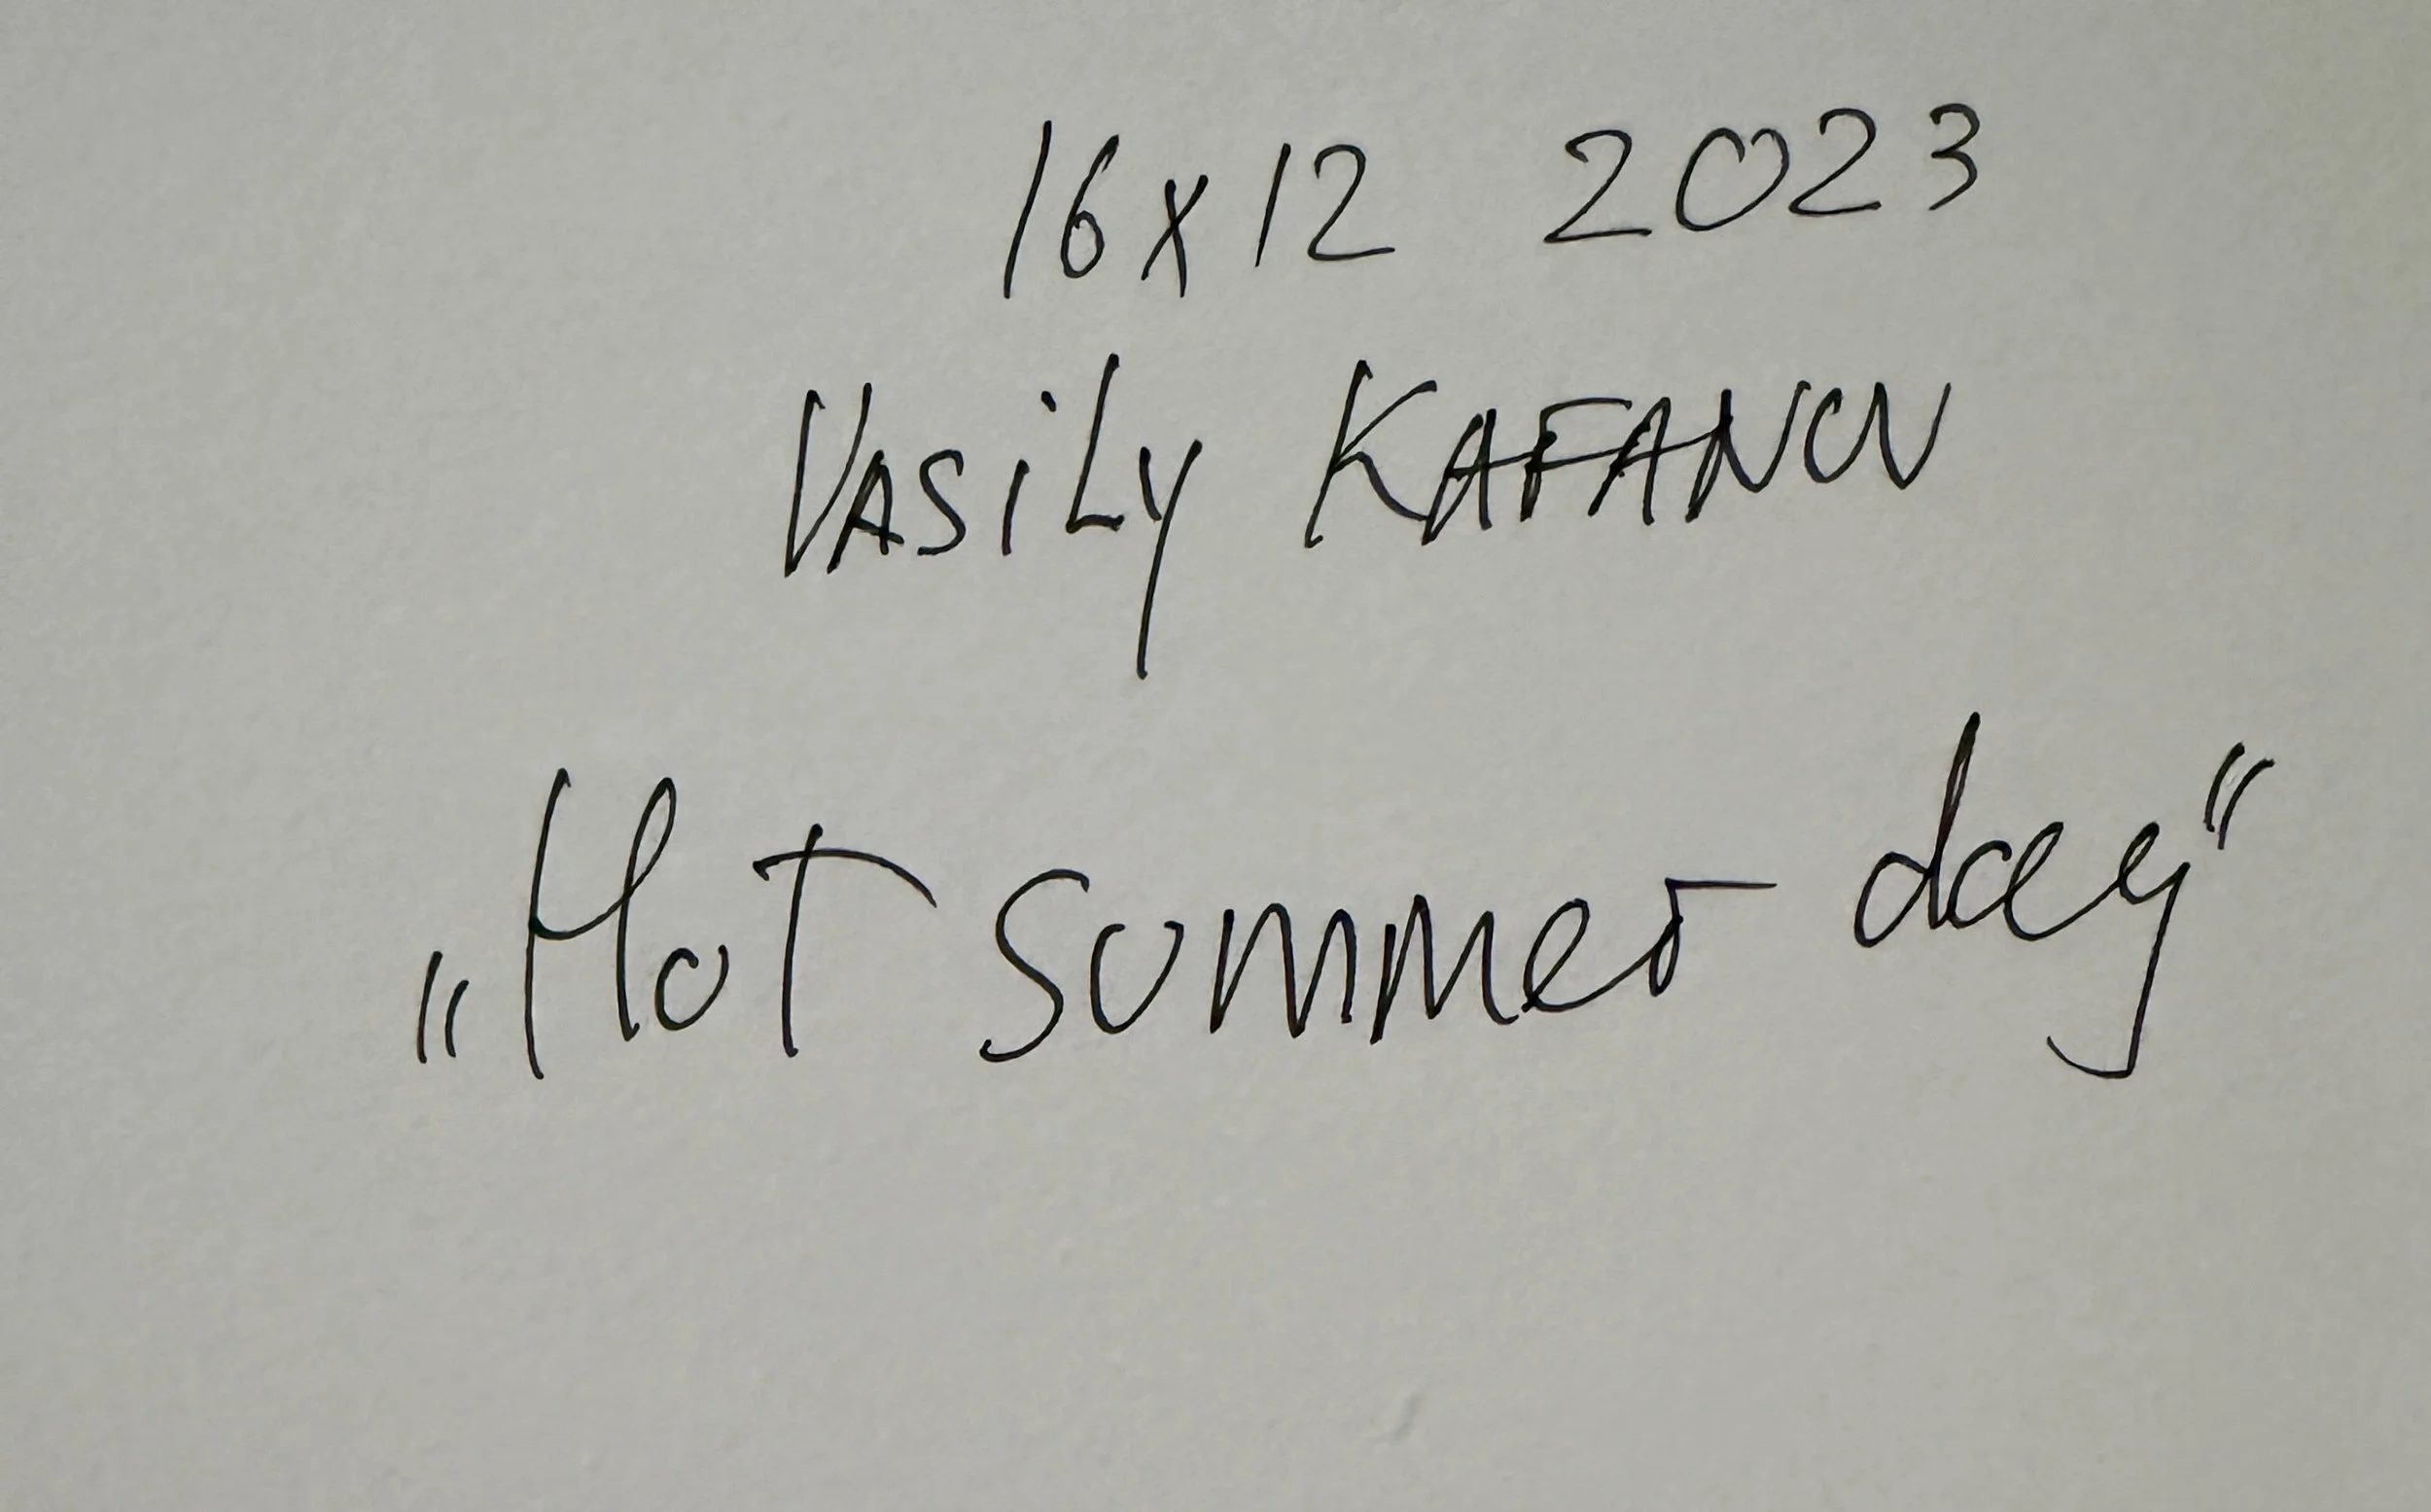 16x12 2023
VASiLY KAFANOV
„Hot summer day“